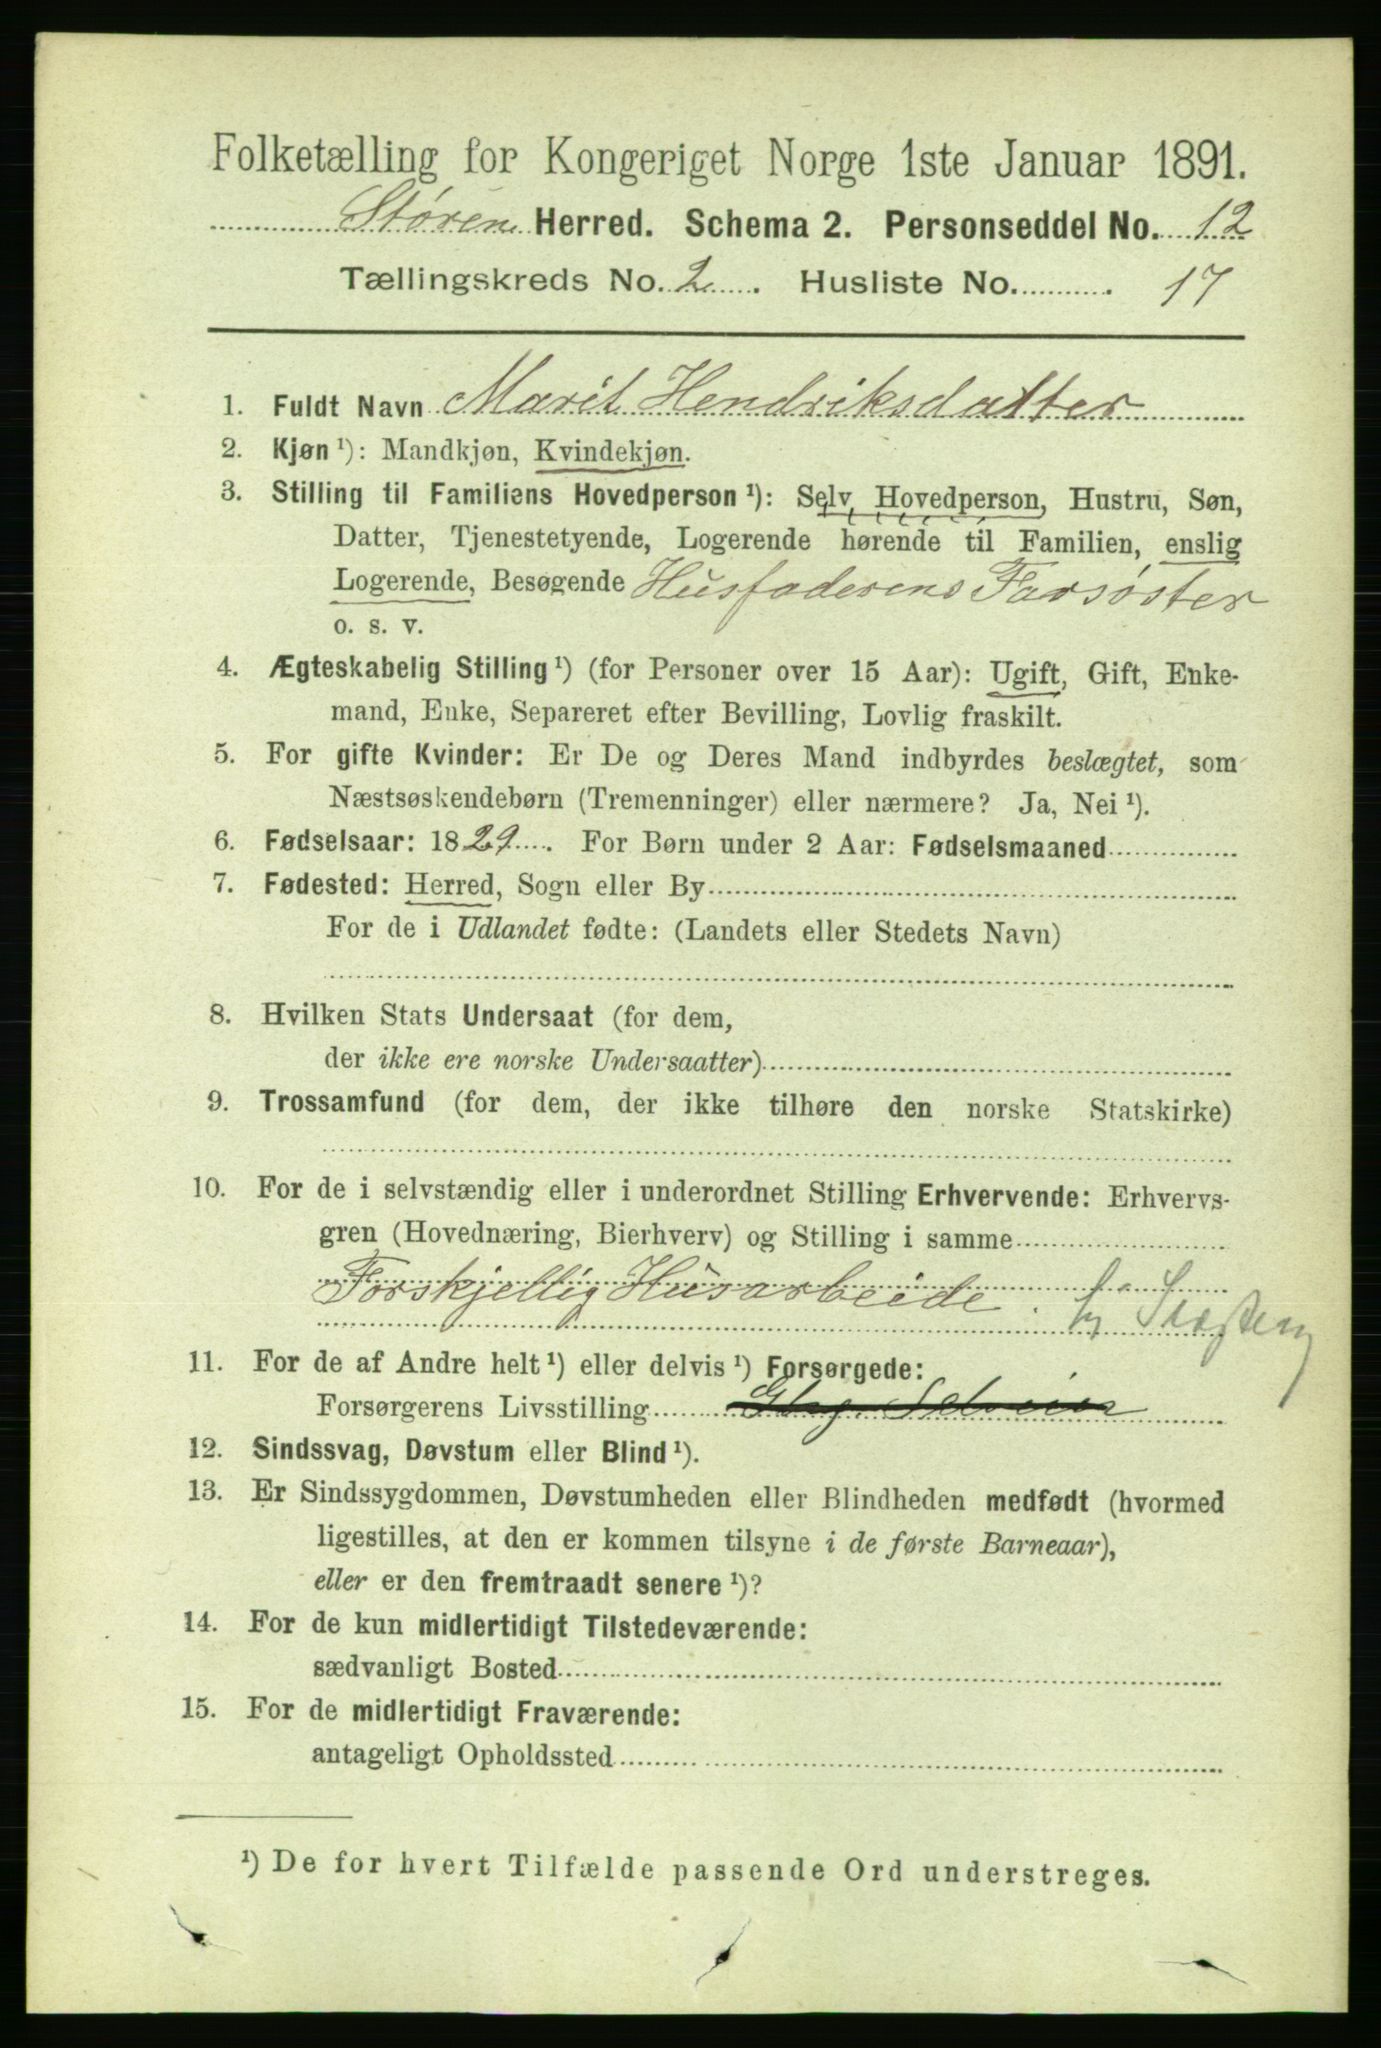 Folketælling for Kongeriget Norge 1ste Januar 1891.
Støren Herred. Schema 2. Personseddel No. 12
Tællingskreds No. 2. Husliste No. 17
1. Fuldt Navn Marit Hendriksdatter
2. Kjøn ¹): Mandkjøn, Kvindekjøn.
3. Stilling til Familiens Hovedperson ¹): Selv Hovedperson, Hustru, Søn,
Datter, Tjenestetyende, Logerende hørende til Familien, enslig
Logerende, Besøgende Husfaderens Farsøster
o. s. v.
4. Ægteskabelig Stilling ¹) (for Personer over 15 Aar): Ugift, Gift, Enke-
mand, Enke, Separeret efter Bevilling, Lovlig fraskilt.
5. For gifte Kvinder: Er De og Deres Mand indbyrdes beslægtet, som
Næstsøskendebørn (Tremenninger) eller nærmere? Ja, Nei ¹).
6. Fødselsaar: 1829. For Børn under 2 Aar: Fødselsmaaned
7. Fødested: Herred, Sogn eller By
For de i Udlandet fødte: (Landets eller Stedets Navn)
8. Hvilken Stats Undersaat (for dem,
der ikke ere norske Undersaatter)
9. Trossamfund (for dem, der ikke tilhøre den norske Statskirke)
10. For de i selvstændig eller i underordnet Stilling Erhvervende: Erhvervs-
gren (Hovednæring, Bierhverv) og Stilling i samme
Forskjellig Husarbeide.
11. For de af Andre helt ¹) eller delvis ¹) Forsørgede:
Forsørgerens Livsstilling
12. Sindssvag, Døvstum eller Blind ¹).
13. Er Sindssygdommen, Døvstumheden eller Blindheden medfødt (hvormed
ligestilles, at den er kommen tilsyne i de første Barneaar),
eller er den fremtraadt senere ¹)?
14. For de kun midlertidigt Tilstedeværende:
sædvanligt Bosted
15. For de midlertidigt Fraværende:
antageligt Opholdssted
¹) De for hvert Tilfælde passende Ord understreges.